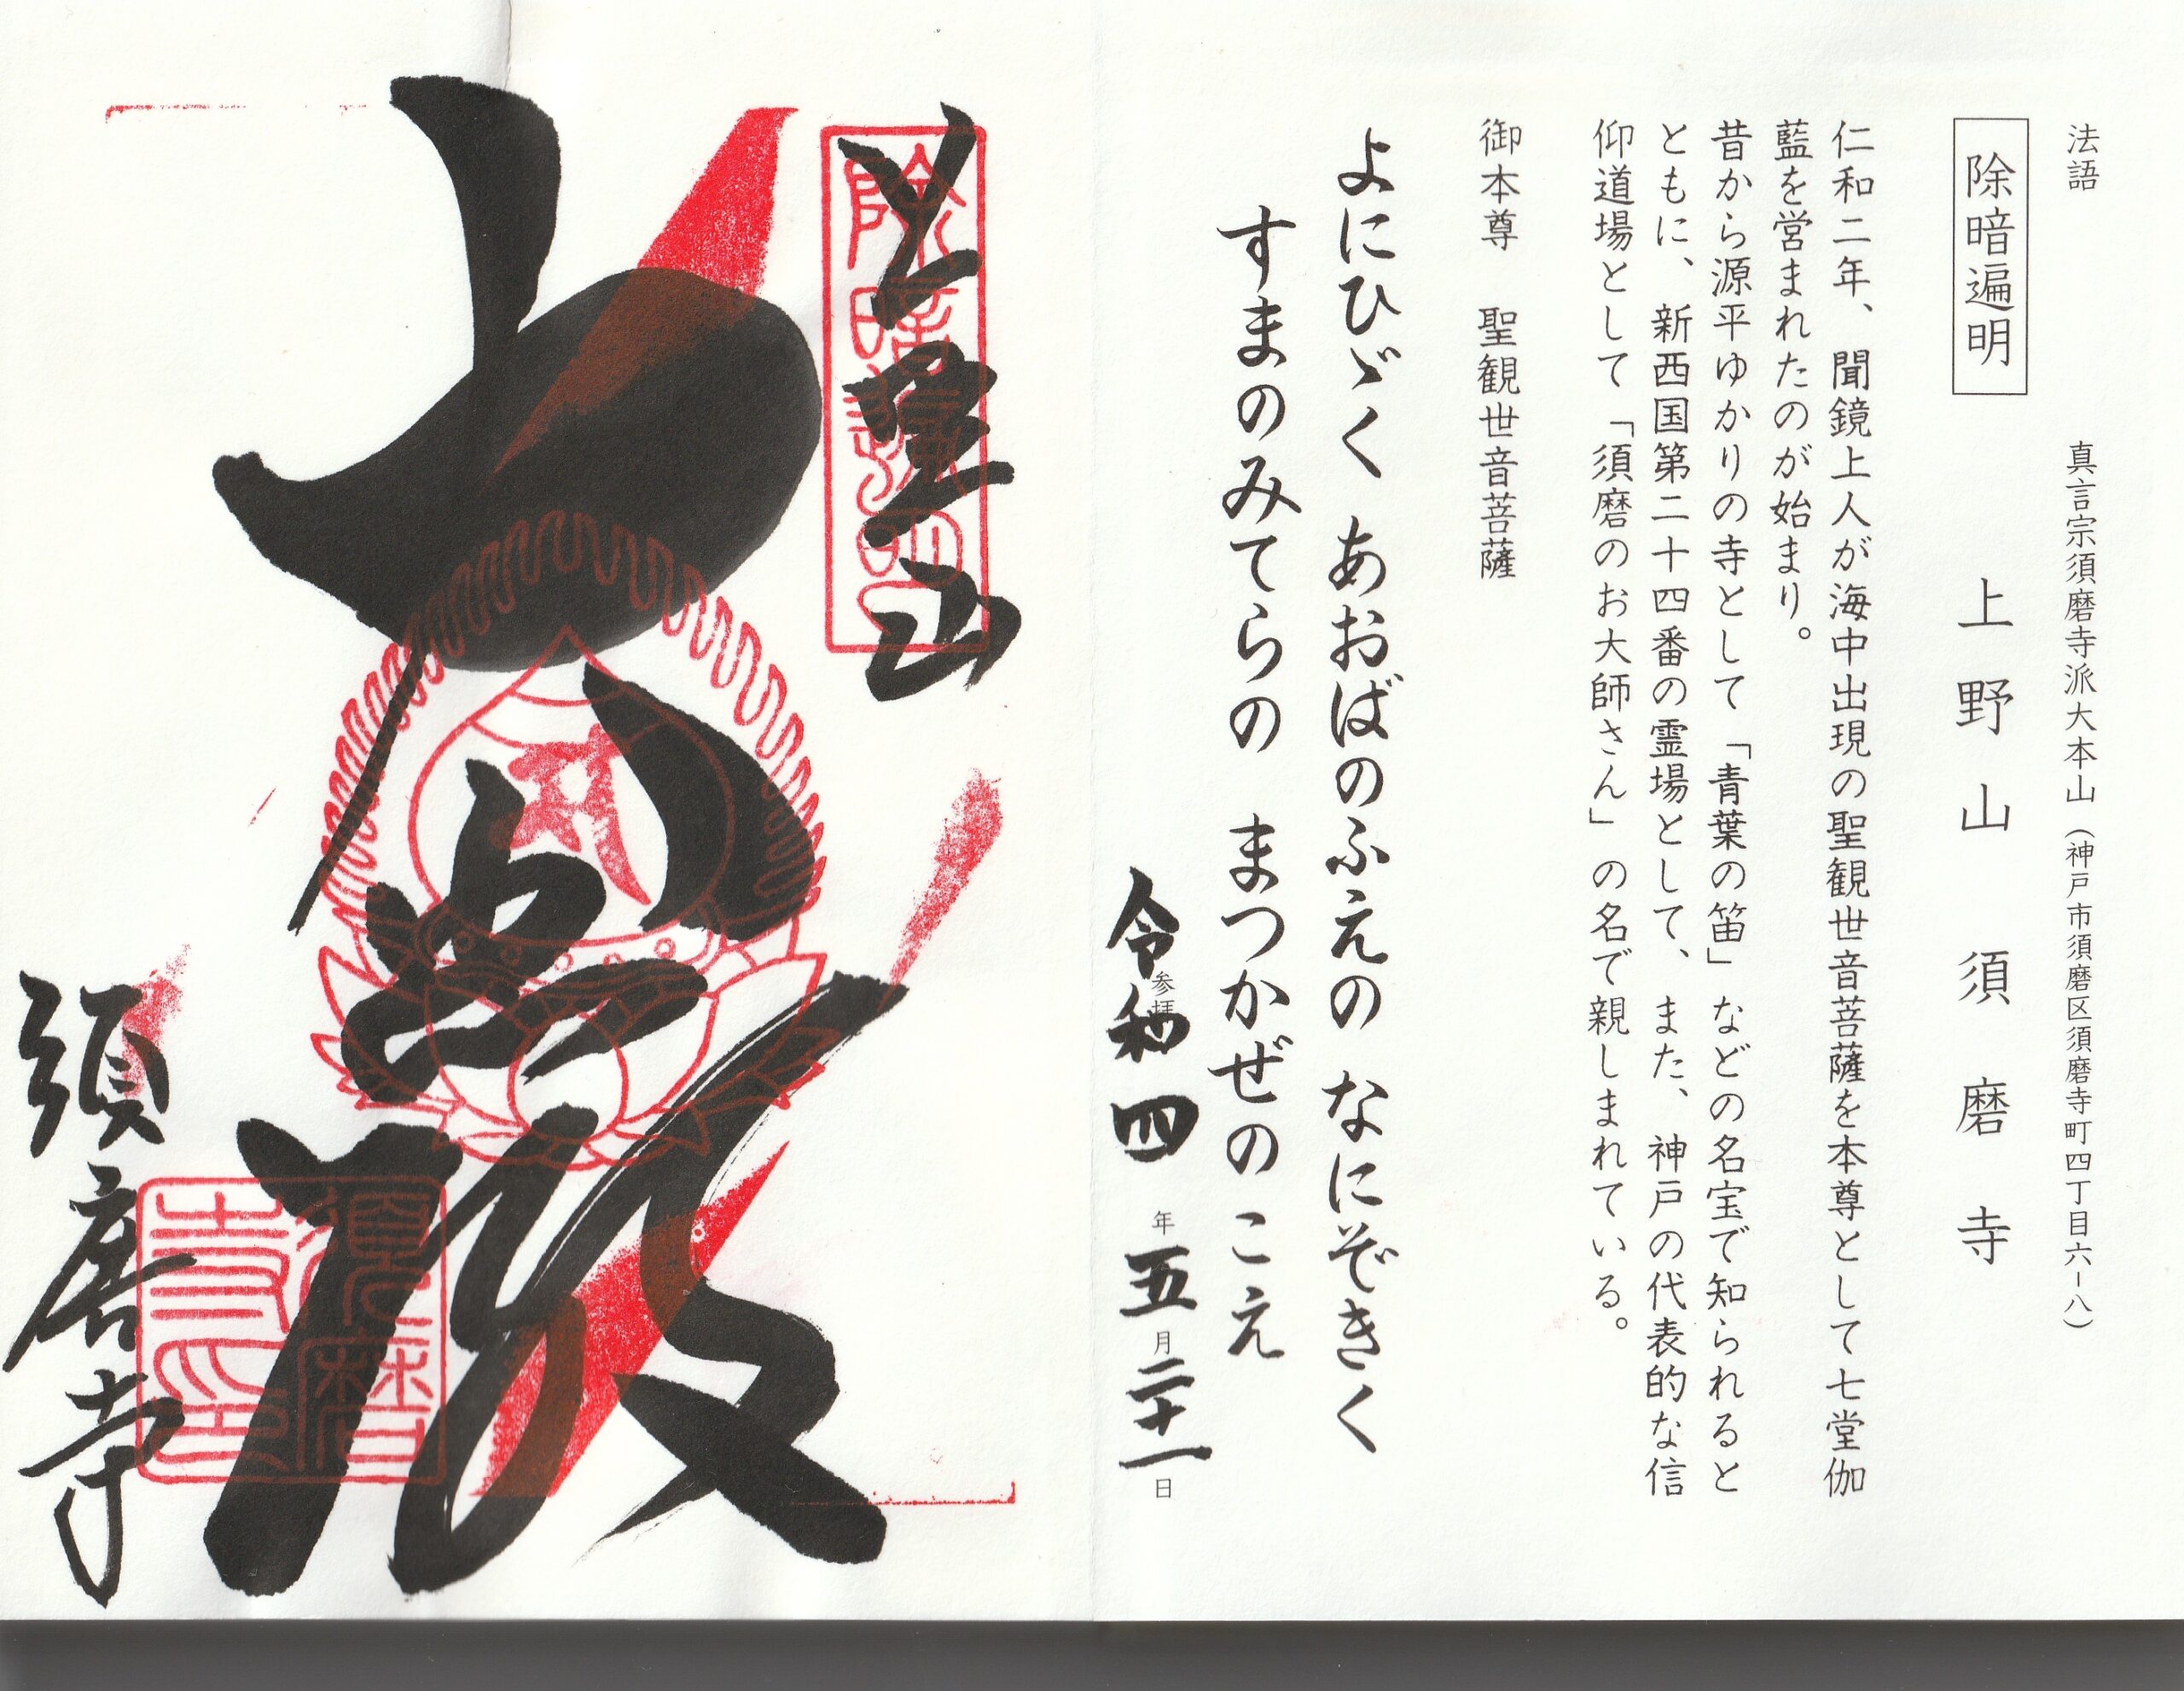 法語
真言宗須磨寺派大本山(神戸市須磨区須磨寺町四丁目六-八)
除暗遍明
上野山 須磨寺
仁和二年、聞鏡上人が海中出現の聖観世音菩薩を本尊として七堂伽
藍を営まれたのが始まり。
昔から源平ゆかりの寺として「青葉の笛」などの名宝で知られると
ともに、新西国第二十四番の霊場として、また、神戸の代表的な信
仰道場として「須磨のお大師さん」の名で親しまれている。
御本尊 聖観世音菩薩
よにひゞく あおばのふえの なにぞきく
すまのみてらの まつかぜのこえ
参拝
令和四年五月二十一日
除暗遍明
上野山
須磨寺
須磨寺印